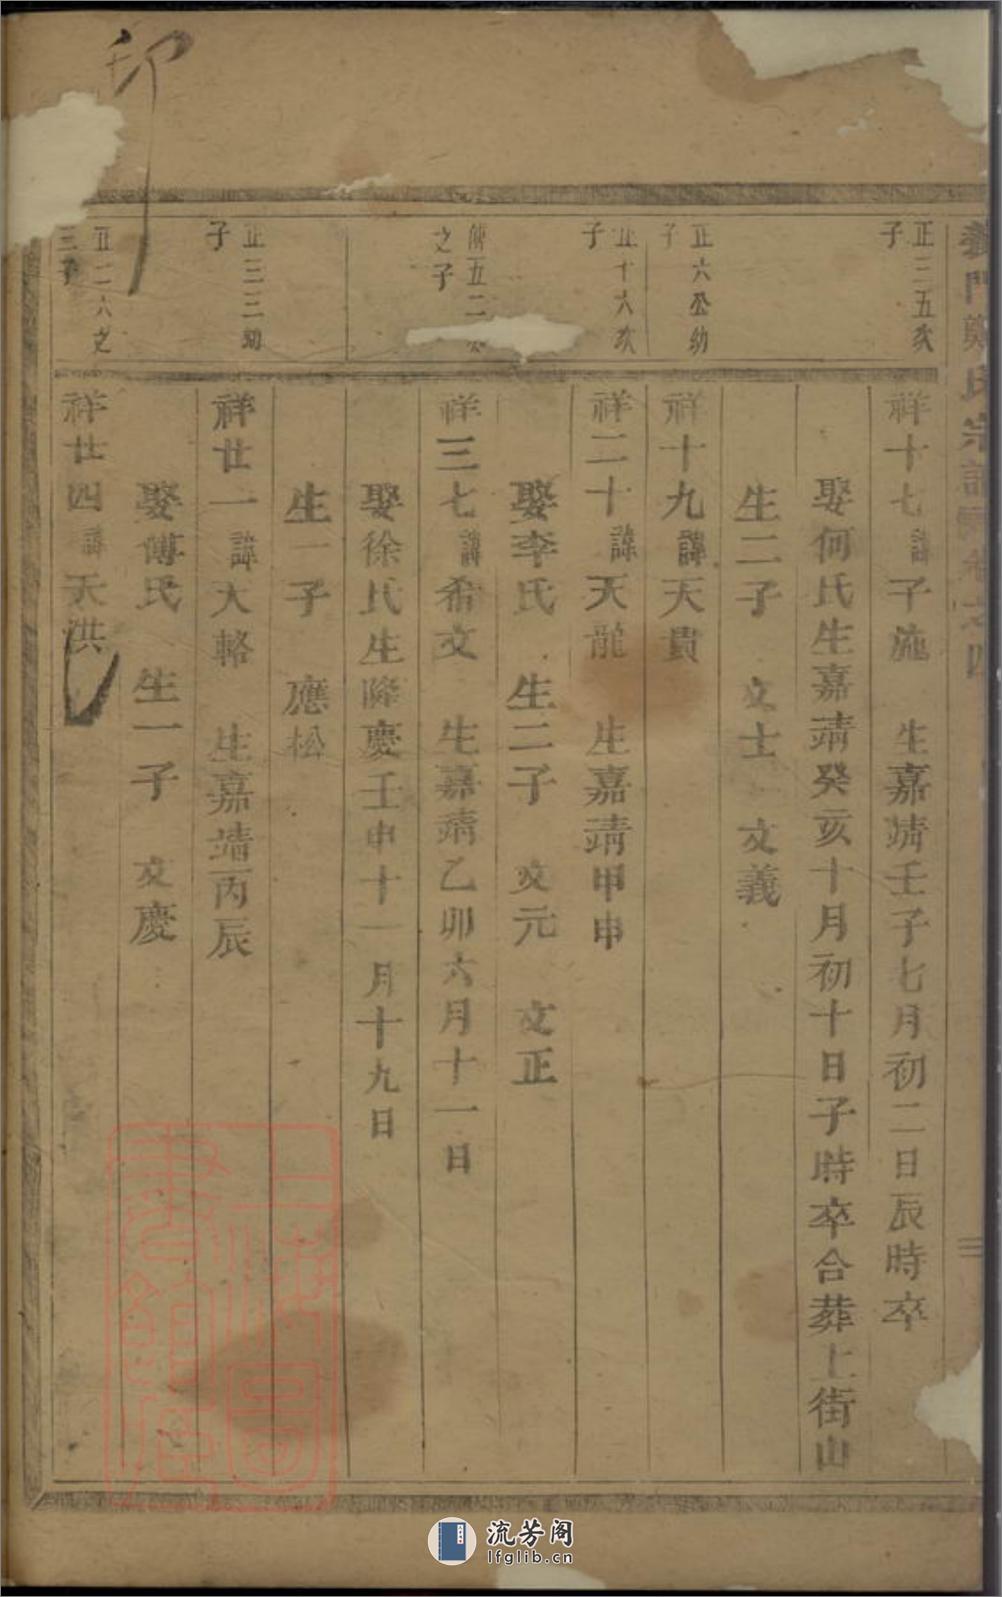 義門鄭氏宗譜 卷之四
三
正三五次
子
祥十七諱子施 生嘉靖壬子七月初二日辰時卒
娶何氏生嘉靖癸亥十月初十日子時卒合葬上街山
生二子 文士 文義
正六公幼
子
祥十九諱天貴
正十六次
子
祥二十諱天龍 生嘉靖甲申
娶李氏 生二子 文元 文正
五二公
之子
祥三七諱希文 生嘉靖乙卯六月十一日
娶徐氏生隆慶壬申十一月十九日
生一子 應松
正三三幼
子
祥廿一諱大輅 生嘉靖丙辰
娶傅氏 生一子 文慶
正二六之
三子
祥廿四諱天洪
印
上海圖書館藏
流芳阁
lfglib.cn